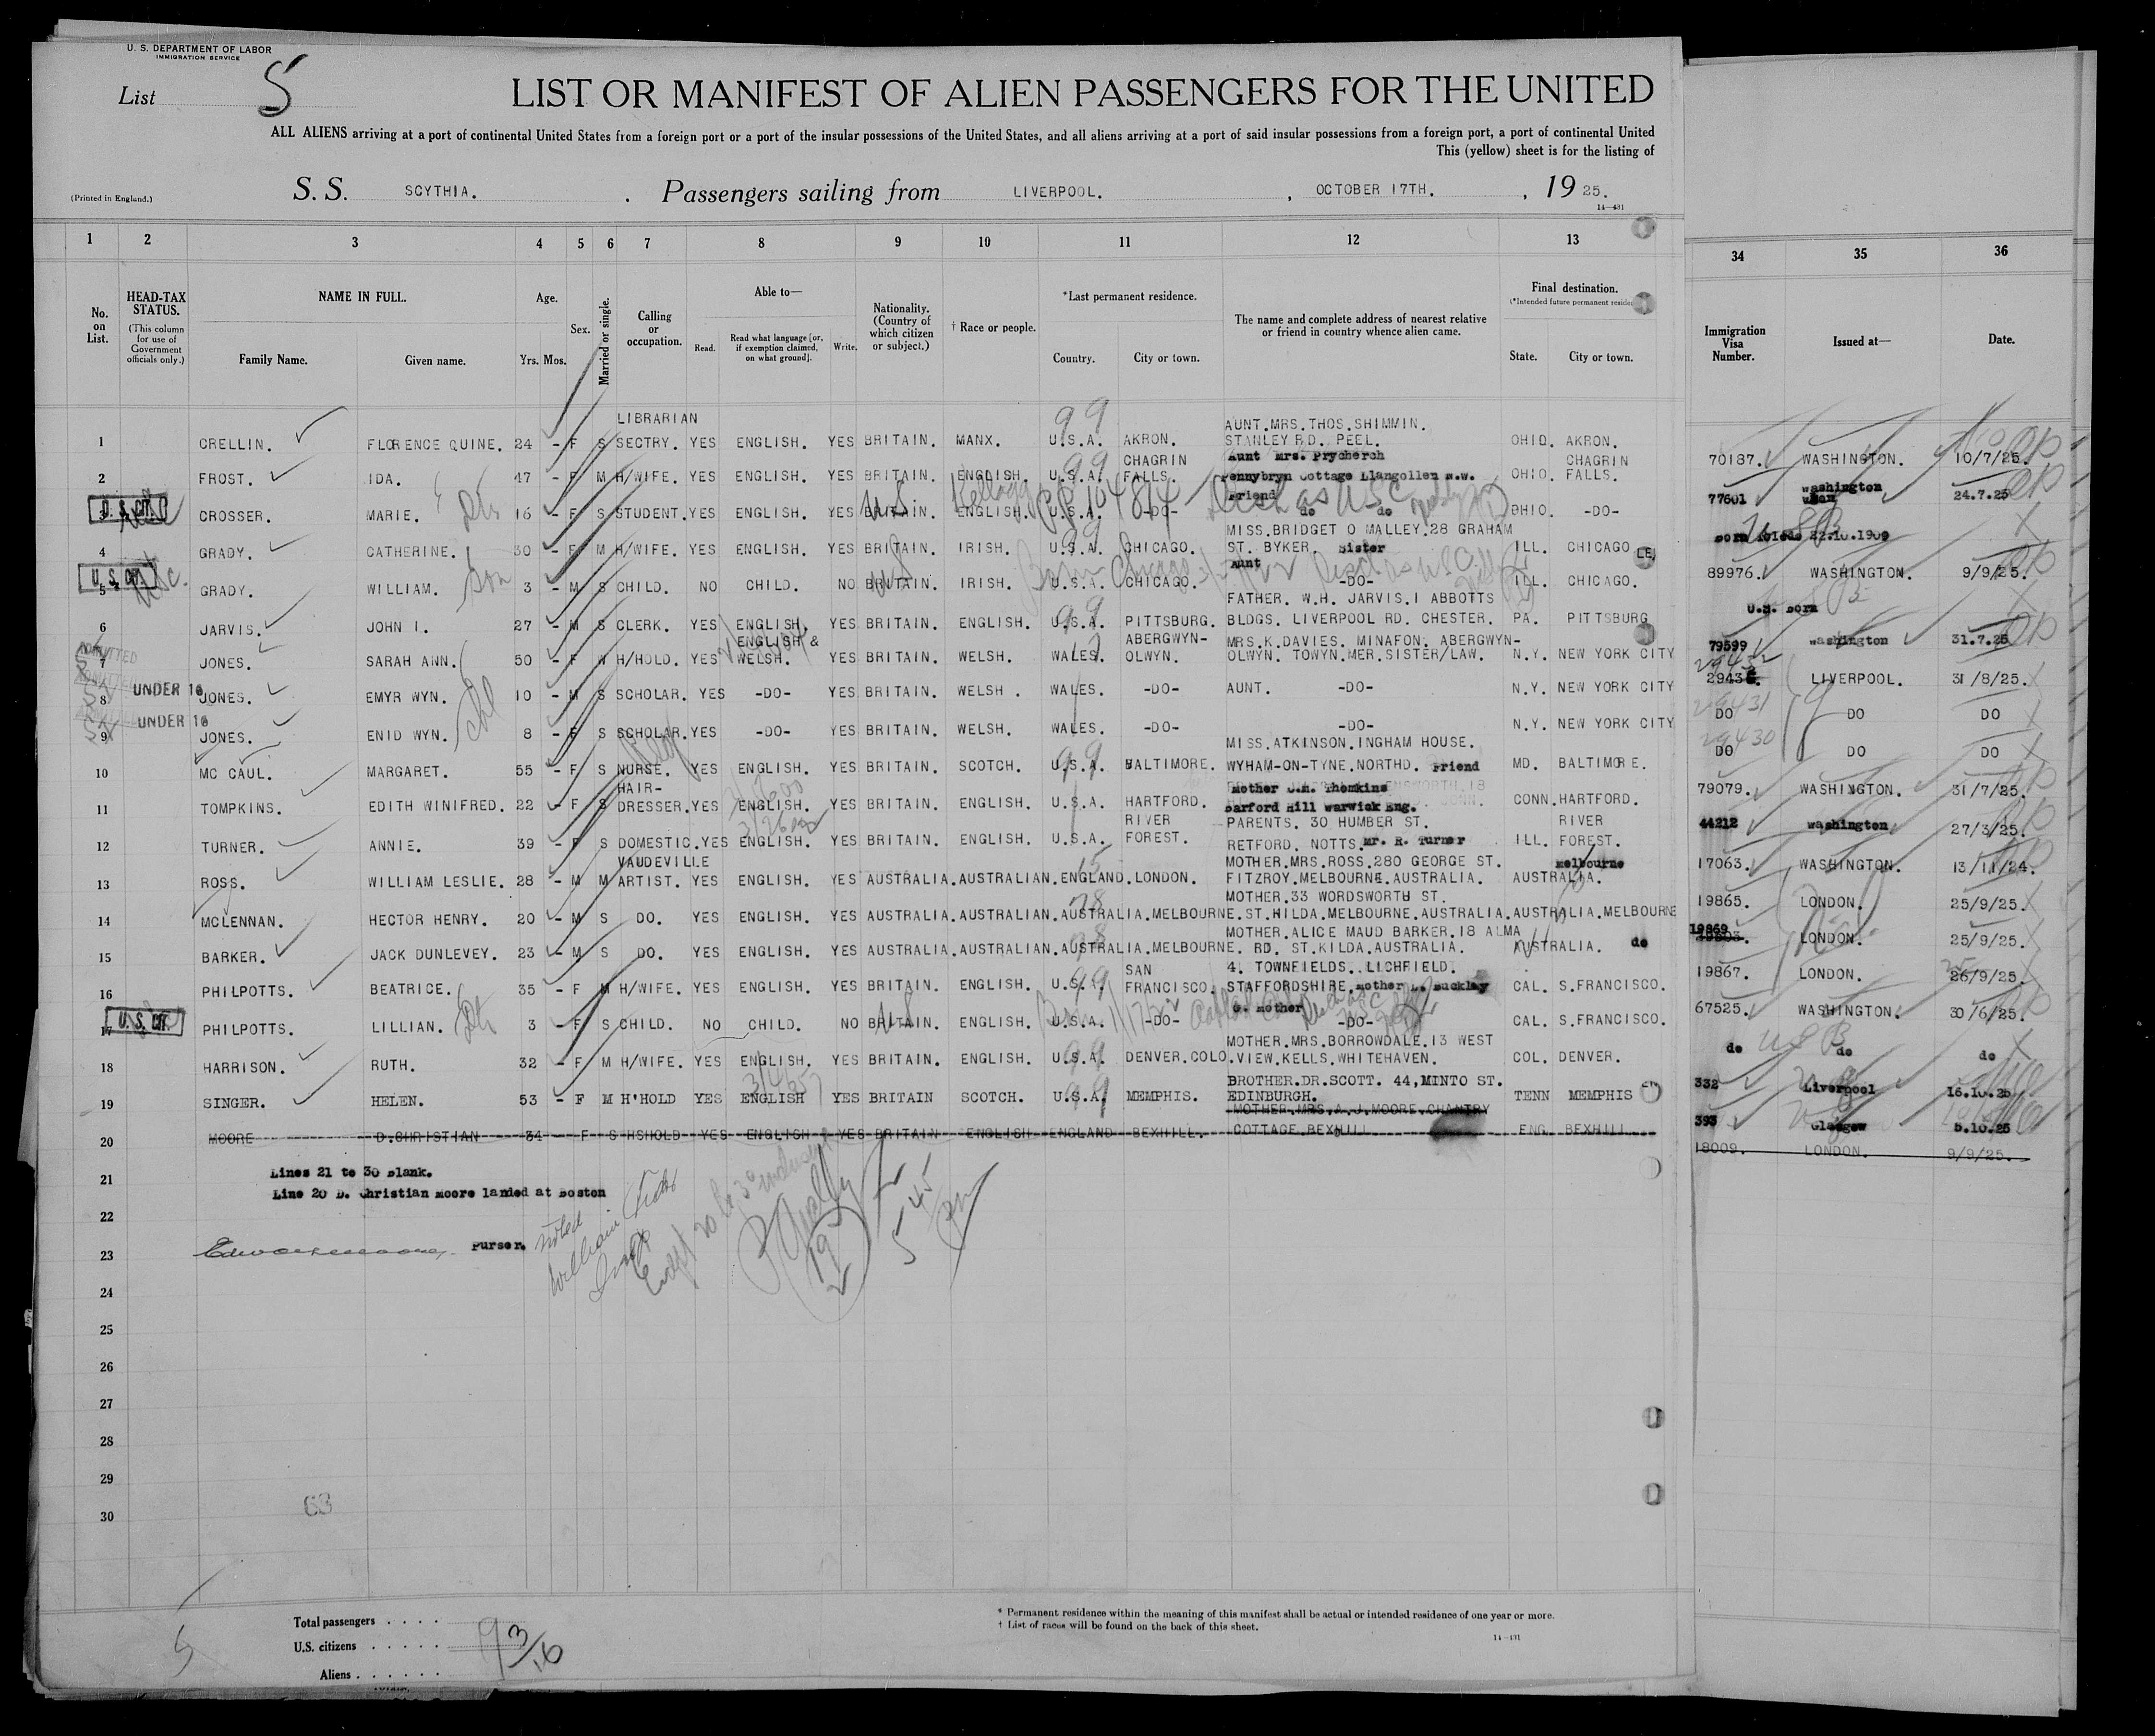 U. S. DEPARTMENT OF LABOR
IMMIGRATION SERVICE
List 5
LIST OR MANIFEST OF ALIEN PASSENGERS FOR THE UNITED
ALL ALIENS arriving at a port of continental United States from a foreign port or a port of the insular possessions of the United States, and all aliens arriving at a port of said insular possessions from a foreign port, a port of continental United
This (yellow) sheet is for the listing of
(Printed in England.)
S. S. SCYTHIA. . Passengers sailing from LIVERPOOL. , OCTOBER 17TH. , 19 25.
14-431
1 2 3 4 5 6 7 8 9 10 11 12 13 34 35 36
No. on List.
HEAD-TAX STATUS.
(This column for use of Government officials only.)
NAME IN FULL.
Family Name. Given name.
Age.
Yrs. Mos.
Sex.
Married or single.
Calling or occupation.
Able to—
Read. Read what language [or, if exemption claimed, on what ground]. Write.
Nationality. (Country of which citizen or subject.)
† Race or people.
*Last permanent residence.
Country. City or town.
The name and complete address of nearest relative or friend in country whence alien came.
Final destination.
State. City or town.
Immigration Visa Number.
Issued at—
Date.
1 CRELLIN. FLORENCE QUINE. 24 - F S LIBRARIAN SECTRY. YES ENGLISH. YES BRITAIN. MANX. U.S.A. AKRON. AUNT.MRS.THOS.SHIMMIN. STANLEY RD. PEEL. OHIO. AKRON. 70187. WASHINGTON. 10/7/25.
2 FROST. IDA. 47 - F M H/WIFE. YES ENGLISH. YES BRITAIN. ENGLISH. U.S.A. CHAGRIN FALLS. Aunt Mrs. Prycherch Pennybryn Cottage Llangollen N.W. OHIO. CHAGRIN FALLS. 77601 Washington 24.7.25
U.S. CIT. 3 CROSSER. MARIE. Dtr 16 - F S STUDENT. YES ENGLISH. YES BRITAIN. US ENGLISH. U.S.A. -DO- Friend do do OHIO. -DO- Born Toledo 22.10.1909
4 GRADY. CATHERINE. 30 - F M H/WIFE. YES ENGLISH. YES BRITAIN. IRISH. U.S.A. CHICAGO. MISS.BRIDGET O MALLEY.28 GRAHAM ST. BYKER. Sister ILL. CHICAGO 89976. WASHINGTON. 9/9/25.
U.S. CIT. 5 GRADY. WILLIAM. Son 3 - M S CHILD. NO CHILD. NO BRITAIN. US IRISH. U.S.A. CHICAGO. Aunt -DO- ILL. CHICAGO. U.S. Born
6 JARVIS. JOHN I. 27 - M S CLERK. YES ENGLISH. YES BRITAIN. ENGLISH. U.S.A. PITTSBURG. FATHER. W.H. JARVIS.I ABBOTTS BLDGS. LIVERPOOL RD. CHESTER. PA. PITTSBURG 79599 Washington 31.7.25
7 JONES. SARAH ANN. 50 - F W H/HOLD. YES ENGLISH & WELSH. YES BRITAIN. WELSH. WALES. ABERGWYN-OLWYN. MRS.K.DAVIES. MINAFON. ABERGWYN-OLWYN. TOWYN.MER.SISTER/LAW. N.Y. NEW YORK CITY 29432 LIVERPOOL. 31/8/25.
8 UNDER 16 JONES. EMYR WYN. 10 - M S SCHOLAR. YES -DO- YES BRITAIN. WELSH . WALES. -DO- AUNT. -DO- N.Y. NEW YORK CITY 29431 DO DO DO
9 UNDER 16 JONES. ENID WYN. 8 - F S SCHOLAR. YES -DO- YES BRITAIN. WELSH. WALES. -DO- -DO- N.Y. NEW YORK CITY 29430 DO DO DO
10 MC CAUL. MARGARET. 55 - F S NURSE. YES ENGLISH. YES BRITAIN. SCOTCH. U.S.A. BALTIMORE. MISS.ATKINSON.INGHAM HOUSE. WYHAM-ON-TYNE.NORTHD. Friend MD. BALTIMORE. 79079. WASHINGTON. 31/7/25.
11 TOMPKINS. EDITH WINIFRED. 22 - F S HAIR-DRESSER. YES ENGLISH. YES BRITAIN. ENGLISH. U.S.A. HARTFORD. Barford Hill Warwick Eng. CONN. HARTFORD. 44212 Washington 27/3/25.
12 TURNER. ANNIE. 39 - F S DOMESTIC. YES ENGLISH. YES BRITAIN. ENGLISH. U.S.A. RIVER FOREST. PARENTS. 30 HUMBER ST. RETFORD. NOTTS. Mr. R. Turner ILL. RIVER FOREST. 17063. WASHINGTON. 13/11/24.
13 ROSS. WILLIAM LESLIE. 28 - M M VAUDEVILLE ARTIST. YES ENGLISH. YES AUSTRALIA. AUSTRALIAN. ENGLAND. LONDON. MOTHER.MRS.ROSS.280 GEORGE ST. FITZROY.MELBOURNE.AUSTRALIA. AUSTRALIA. Melbourne 19865. LONDON. 25/9/25.
14 MCLENNAN. HECTOR HENRY. 20 - M S DO. YES ENGLISH. YES AUSTRALIA. AUSTRALIAN. AUSTRALIA. MELBOURNE. MOTHER.33 WORDSWORTH ST. ST.HILDA.MELBOURNE.AUSTRALIA. AUSTRALIA. MELBOURNE 19869 LONDON. 25/9/25.
15 BARKER. JACK DUNLEVEY. 23 - M S DO. YES ENGLISH. YES AUSTRALIA. AUSTRALIAN. AUSTRALIA. MELBOURNE. MOTHER.ALICE MAUD BARKER.18 ALMA RD. ST.KILDA.AUSTRALIA. AUSTRALIA. do 19867. LONDON. 26/9/25.
16 PHILPOTTS. BEATRICE. 35 - F M H/WIFE. YES ENGLISH. YES BRITAIN. ENGLISH. U.S.A. SAN FRANCISCO. 4. TOWNFIELDS. LICHFIELD. STAFFORDSHIRE. Mother Buckley CAL. S.FRANCISCO. 67525. WASHINGTON. 30/6/25.
U.S. CIT. 17 PHILPOTTS. LILLIAN. Dtr 3 - F S CHILD. NO CHILD. NO BRITAIN. US ENGLISH. U.S.A. -DO- G. Mother -DO- CAL. S.FRANCISCO. do do do
18 HARRISON. RUTH. 32 - F M H/WIFE. YES ENGLISH. YES BRITAIN. ENGLISH. U.S.A. DENVER.COLO. MOTHER.MRS.BORROWDALE.13 WEST VIEW.KELLS.WHITEHAVEN. COL. DENVER. 332 Liverpool 16.10.25
19 SINGER. HELEN. 53 - F M H'HOLD YES ENGLISH YES BRITAIN SCOTCH. U.S.A. MEMPHIS. BROTHER.DR.SCOTT. 44,MINTO ST. EDINBURGH. TENN MEMPHIS 393 Glasgow 5.10.25
20 MOORE D.CHRISTIAN 34 - F S HSHOLD YES ENGLISH YES BRITAIN ENGLISH ENGLAND BEXHILL. MOTHER.MRS.A.J.MOORE.CHANTRY COTTAGE.BEXHILL ENG. BEXHILL. 18009. LONDON. 9/9/25.
21 Lines 21 to 30 Blank.
Line 20 D. Christian Moore landed at Boston
22
23 Purser.
24
25
26
27
28
29
30
63
Total passengers . . . .
U.S. citizens . . . . . 3
Aliens . . . . . . 16
* Permanent residence within the meaning of this manifest shall be actual or intended residence of one year or more.
† List of races will be found on the back of this sheet.
14-431